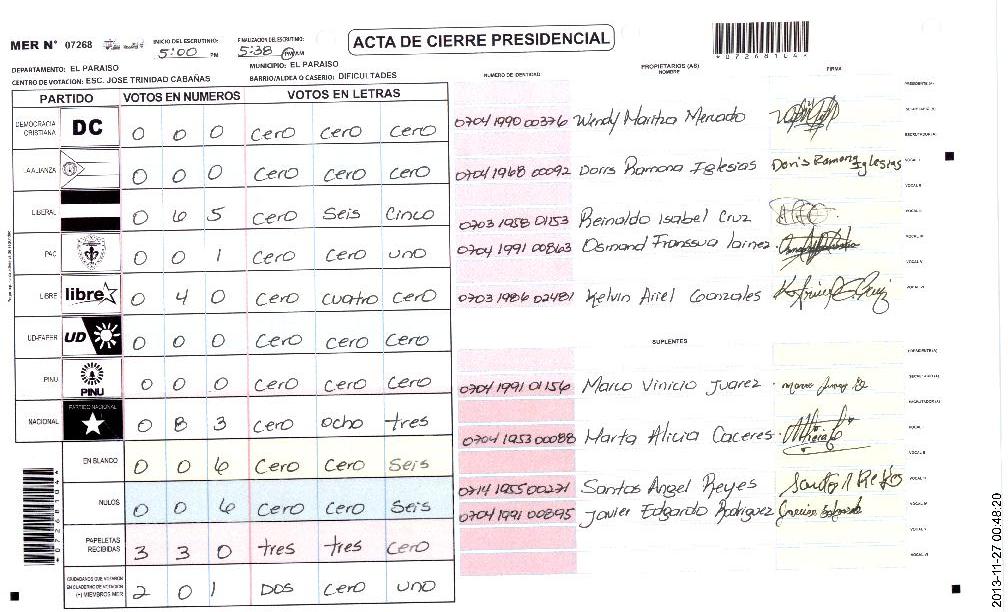 MER N° 07268
INICIO DEL ESCRUTINIO: 5:00 PM
FINALIZACIÓN DEL ESCRUTINIO: 5:38 PM/AM
ACTA DE CIERRE PRESIDENCIAL
*07268104*
DEPARTAMENTO: EL PARAISO
MUNICIPIO: EL PARAISO
CENTRO DE VOTACION: ESC. JOSE TRINIDAD CABAÑAS
BARRIO/ALDEA O CASERIO: DIFICULTADES
PARTIDO VOTOS EN NUMEROS VOTOS EN LETRAS
DEMOCRACIA CRISTIANA DC 0 0 0 cero cero cero
LA ALIANZA 0 0 0 cero cero cero
LIBERAL 0 6 5 cero Seis Cinco
PAC 0 0 1 cero cero uno
LIBRE libre 0 4 0 cero cuatro cero
UD-FAPER UD 0 0 0 cero cero cero
PINU PINU 0 0 0 cero cero cero
NACIONAL PARTIDO NACIONAL 0 8 3 cero ocho tres
EN BLANCO 0 0 6 cero cero Seis
NULOS 0 0 6 cero cero Seis
PAPELETAS RECIBIDAS 3 3 0 tres tres cero
CIUDADANOS QUE VOTARON EN CUADERNO DE VOTACION (+) MIEMBROS MER 2 0 1 DOS cero uno
*07268104*
NUMERO DE IDENTIDAD
PROPIETARIOS (AS)
NOMBRE
FIRMA
PRESIDENTE (A)
0704 1990 00376 Wendy Maritza Mercado SECRETARIO (A)
ESCRUTADOR (A)
0704 1968 00092 Doris Ramona Iglesias Doris Ramona Iglesias VOCAL I
VOCAL II
0703 1958 01153 Reinaldo Isabel Cruz VOCAL III
0704 1991 00863 Osmand Franssua Iainez VOCAL IV
VOCAL V
0703 1986 02481 Kelvin Ariel Gonzales VOCAL VI
SUPLENTES
PRESIDENTE (A)
0704 1991 01156 Marco Vinicio Juarez SECRETARIO (A)
0704 1953 00088 Marta Alicia Caceres VOCAL I
VOCAL II
0714 1955 00271 Santos Angel Reyes VOCAL III
0704 1991 00895 Javier Edgardo Rodriguez VOCAL IV
VOCAL V
VOCAL VI
2013-11-27 00:48:20